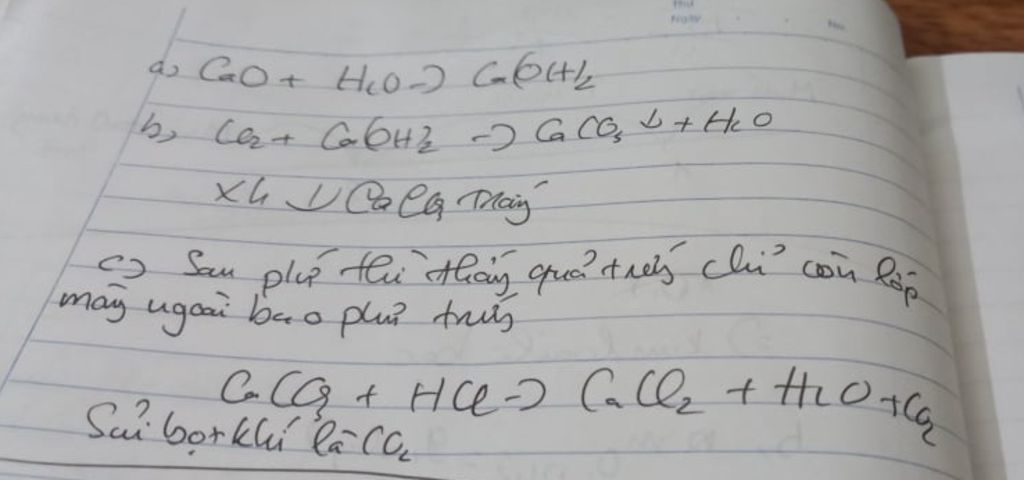 a) CaO + H2O → Ca(OH)2
b) CO2 + Ca(OH)2 → CaCO3 ↓ + H2O
xh ↓ CaCO3 trắng
c) Sau phút thì thấy quả trứng chỉ còn lớp
màng ngoài bao phủ trứng
CaCO3 + HCl → CaCl2 + H2O + CO2
Sủi bọt khí là CO2